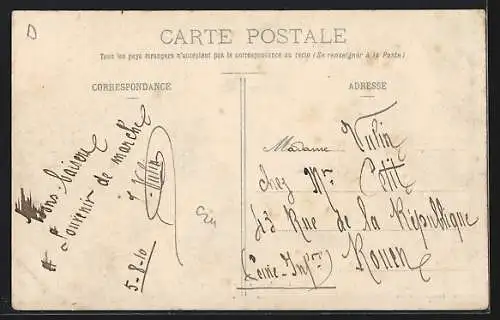 D
CARTE POSTALE
Tous les pays étrangers n'acceptent pas la correspondance au recto (Se renseigner à la Poste)
CORRESPONDANCE
Bons baisers
Souvenir de marche
5-8-10
ADRESSE
Madame
chez Mr Petit
43 Rue de la République
Rouen
(Seine-Infre)